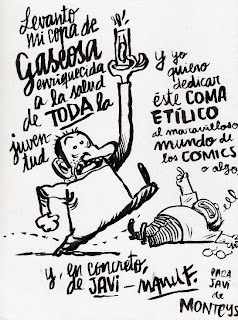 Levanto
mi copa de
Gaseosa
enriquecida
a la salud
de TODA la
juventud
y yo
quiero
dedicar
éste COMA
ETÍLICO
al maravilloso
mundo de
los COMICS
o algo
y, en concreto,
de JAVI -
PARA
JAVI
de
MONTEYS